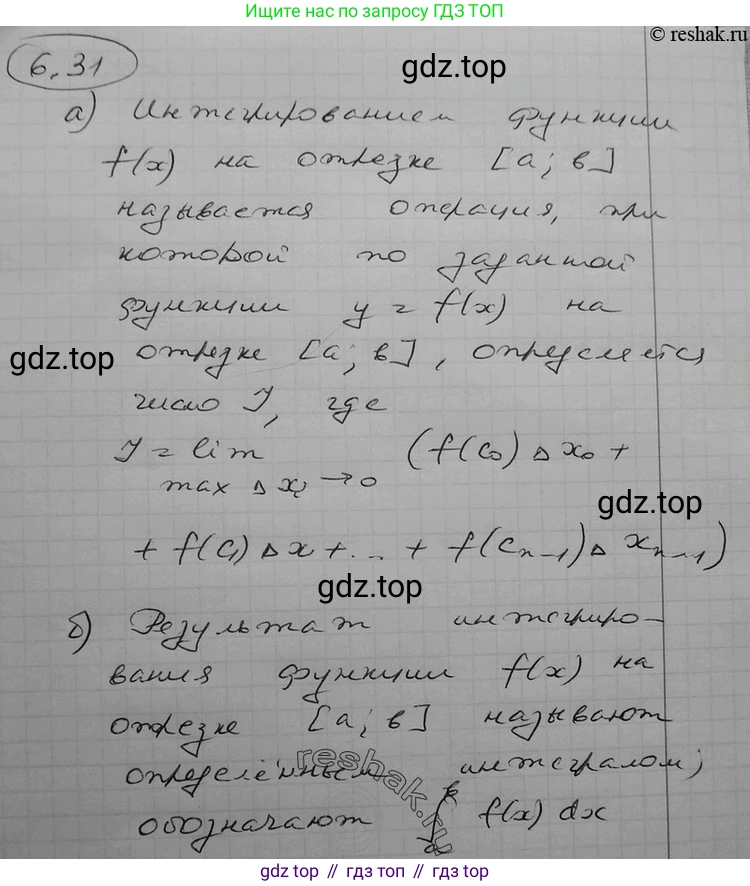 Ищите нас по запросу ГДЗ ТОП
© reshak.ru
6.31
gdz.top
а) Интегрированием функции
f(x) на отрезке [a; в]
называется операция, при
которой по заданной
функции y = f(x) на
gdz.top
отрезке [a; в], определяется
число J, где
J = lim (f(c₀) Δ x₀ +
max Δ xᵢ → 0
gdz.top
+ f(c₁) Δ x + ... + f(cₙ₋₁) Δ xₙ₋₁)
gdz.top
б) Результат интегриро-
вания функции f(x) на
отрезке [a; в] называют
определённым интегралом;
reshak.ru
обозначают ∫ f(x) dx
gdz.top // гдз топ // gdz.top // гдз топ // gdz.top